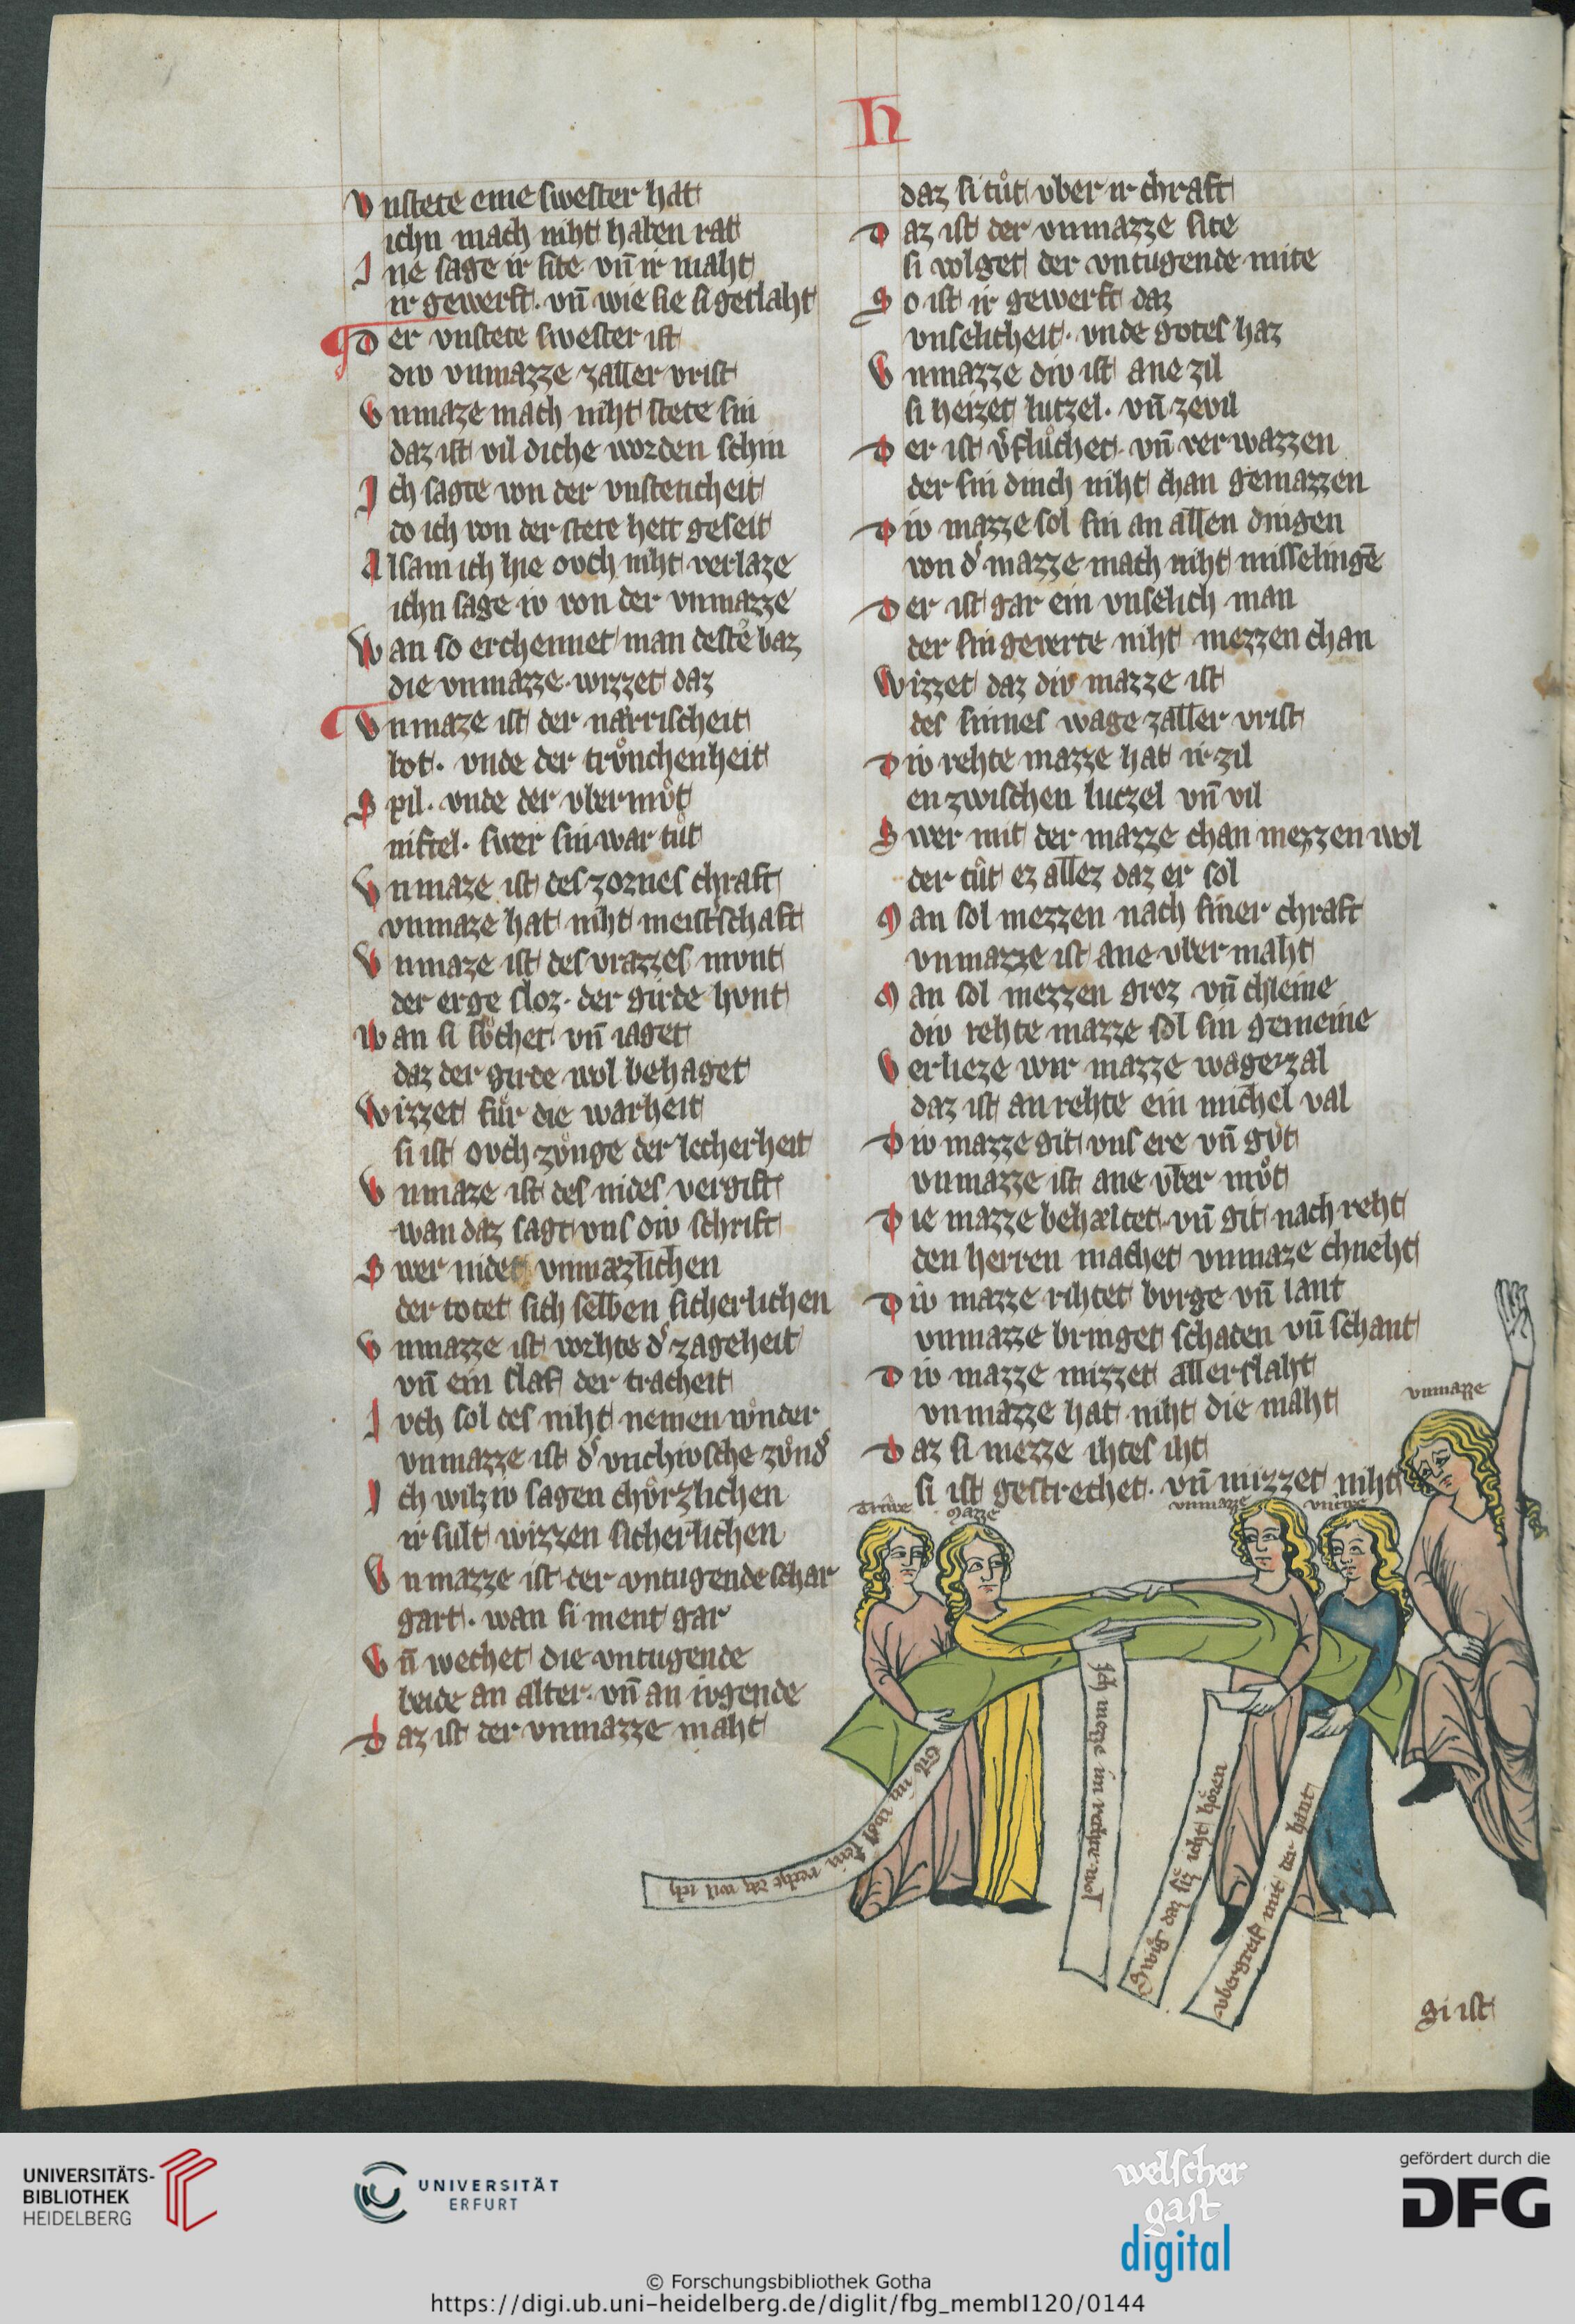 h
Vnstete eine swester hat
ichn mach niht haben rat
Ine sage ir site vn̄ ir maht
ir gewerft· vn̄ wie sie si geslaht
Der vnstete swester ist
div vnmazze zaller vrist
Vnmaze mach niht stete sin
daz ist vil diche worden schin
Ich sagte von der vnsteticheit
do ich von der stete hett geseit
Alsam ich hie ovch niht verlaze
ichn sage iv von der vnmazze
Wan so erchennet man deste baz
die vnmazze· wizzet daz
Vnmaze ist der narrischeit
bot· vnde der trvͦnchenheit
Spil· vnde der vbermvͦt
niftel· swer sin war tuͦt
Vnmaze ist des zornes chraft
vnmaze hat niht meist͛schaft
Vnmaze ist des vrazzes mvnt
der erge sloz· der girde hvnt
Wan si svͦchet vn̄ iaget
daz der girde wol behaget
Wizzet fuͤr die warheit
si ist ovch zvͦnge der lecherheit
Vnmaze ist des nides vergift
wan daz sagt vns div schrift
Swer nidet vnmæzlichen
der totet sich selben sicherlichen
Vnmazze ist vorhte d͛ zageheit
vn̄ ein slaf der tracheit
Ivch sol des niht nemen wnder
vnmazze ist d͛ vnchivsche zvͦnd͛
Ich wilz iv sagen chvͦrzlichen
ir sult wizzen sicherlichen
Vnmazze ist der vntugende schar
gart· wan si ment gar
Vn̄ wechet die vntugende
beide an alter· vn̄ an ivgende
Daz ist der vnmazze maht
daz si tuͦt vber ir chraft
Daz ist der vnmazze site
si volget der vntugende mite
So ist ir gewerft daz
vnselicheit· vnde gotes haz
Vnmazze div ist ane zil
si heizet lutzel· vn̄ zevil
Der ist v͛fluͦchet· vn̄ verwazzen
der sin dinch niht chan gemazzen
Div mazze sol sin an allen dingen
von d͛ mazze mach niht misselingē
Der ist gar ein vnselich man
der sin geverte niht mezzen chan
Wizzet daz div mazze ist
des sinnes wage zaller vrist
Div rehte mazze hat ir zil
enzwischen lutzel vn̄ vil
Swer mit der mazze chan mezzen wol
der tuͦt ez allez daz er sol
Man sol mezzen nach siner chraft
vnmazze ist ane vber maht
Man sol mezzen groz vn̄ chleine
div rehte mazze sol sin gemeine
Verlieze wir mazze wage zal
daz ist an rehte ein michel val
Div mazze git vns ere vn̄ gvͦt
vnmazze ist ane vber mvͦt
Die mazze behæltet· vn̄ git nach reht
den herren machet vnmaze chneht
Div mazze rihtet bvrge vn̄ lant
vnmazze bringet schaden vn̄ schant
Div mazze mizzet aller slaht
vnmazze hat niht die maht
Daz si mezze ihtes iht
si ist gestrechet· vn̄ mizzet niht
vnmazze
Triwe
Mazze
vnmazze
vntriwe
Gib im wol sein recht daz wil ich
Ich mezze im rechte wol
Swig daz liz icht hoͤren
vbergreif mit der hant
Si ist
UNIVERSITÄTS-
BIBLIOTHEK
HEIDELBERG
UNIVERSITÄT
ERFURT
welscher
gast
digital
gefördert durch die
DFG
© Forschungsbibliothek Gotha
https://digi.ub.uni-heidelberg.de/diglit/fbg_membI120/0144